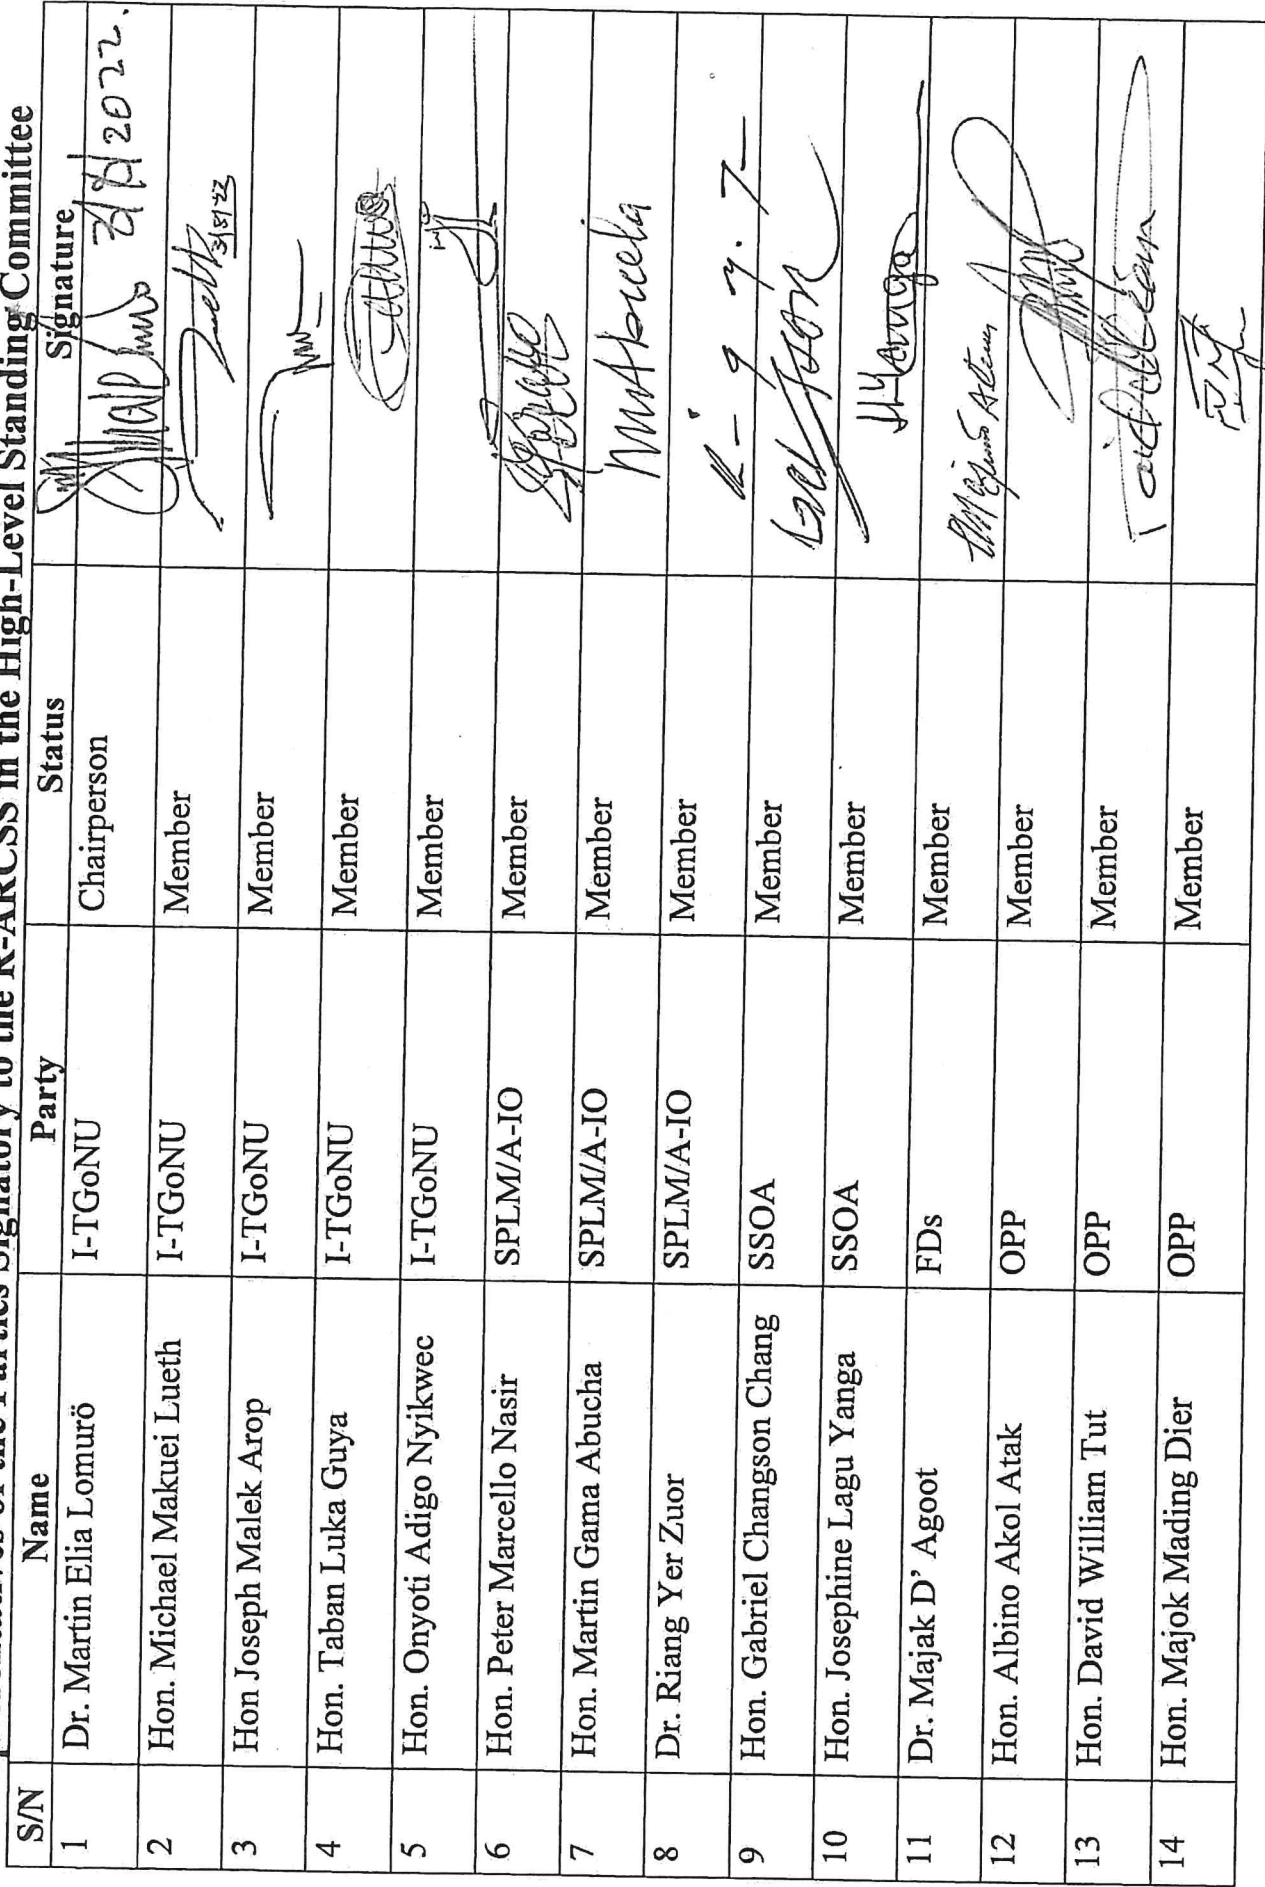 Representatives of the Parties Signatory to the R-ARCSS in the High-Level Standing Committee
S/N Name Party Status Signature
1 Dr. Martin Elia Lomurö I-TGoNU Chairperson 2022.
2 Hon. Michael Makuei Lueth I-TGoNU Member 3/8/22
3 Hon Joseph Malek Arop I-TGoNU Member
4 Hon. Taban Luka Guya I-TGoNU Member
5 Hon. Onyoti Adigo Nyikwec I-TGoNU Member
6 Hon. Peter Marcello Nasir SPLM/A-IO Member
7 Hon. Martin Gama Abucha SPLM/A-IO Member
8 Dr. Riang Yer Zuor SPLM/A-IO Member
9 Hon. Gabriel Changson Chang SSOA Member
10 Hon. Josephine Lagu Yanga SSOA Member
11 Dr. Majak D' Agoot FDs Member
12 Hon. Albino Akol Atak OPP Member
13 Hon. David William Tut OPP Member
14 Hon. Majok Mading Dier OPP Member